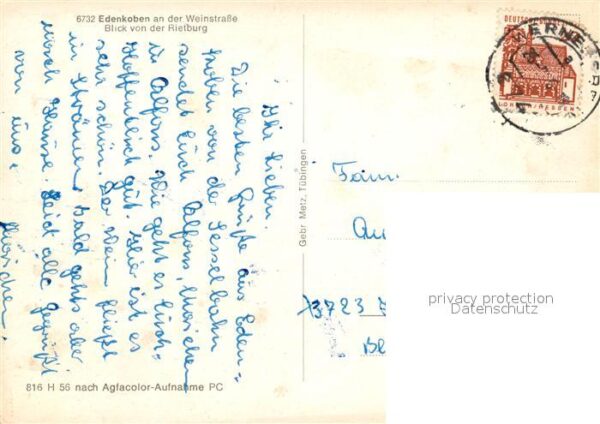 6732 Edenkoben an der Weinstraße
Blick von der Rietburg
Ihr Lieben.
Die besten Grüße aus Eden=
koben von der Sesselbahn
sendet Euch Alfons,
u. Alfons. Wie geht es Euch
Hoffentlich gut. Hier ist es
sehr schön. Der Wein fließt
in Strömen bald gehts aber
nach Hause. Seid alle gegrüßt
von uns.
Gebr Metz, Tübingen
816 H 56 nach Agfacolor-Aufnahme PC
DEUTSCHE
LORSCH/HESSEN
Fam.
3723
privacy protection
Datenschutz